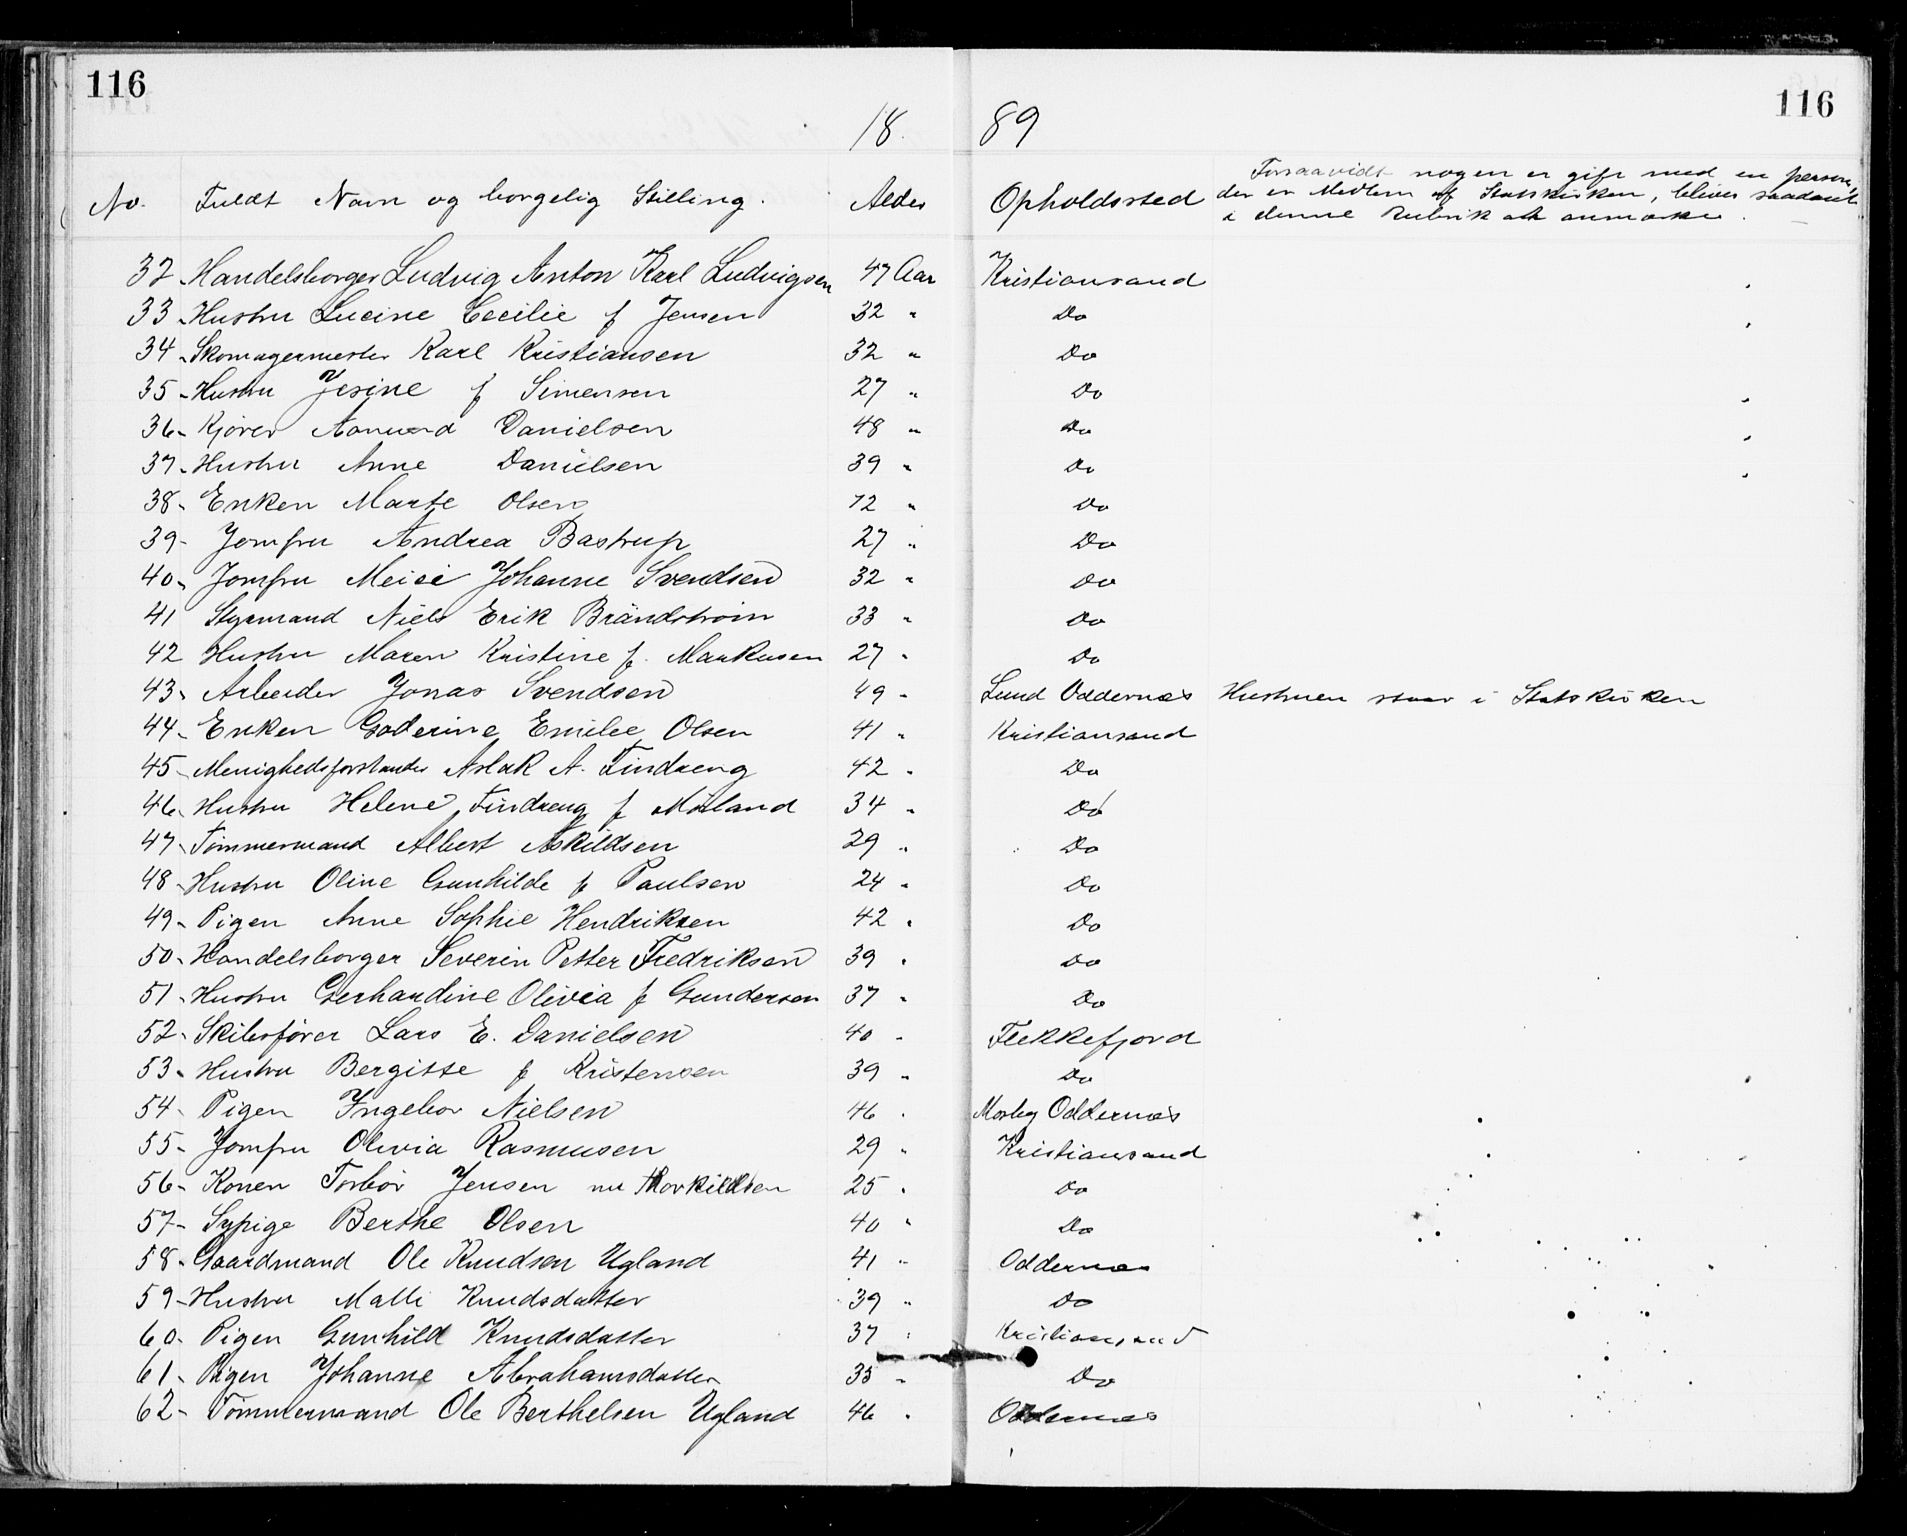 116
116
18 89
No. Fuldt Navn og borgelig Stilling. Alder Opholdssted Forsaavidt nogen er gift med en person,
der er Medlem af Statskirken, bliver saadant
i denne Rubrik at anmærke.
32 Handelsborger Ludvig Anton Karl Ludvigsen 47 Aar Kristiansand
33 Hustru Lucine Cecilie f Jensen 32 " Do
34 Skomagermester Karl Kristiansen 32 " Do
35 Hustru Jesine f Simensen 27 " Do
36 Kjører Aanund Danielsen 48 " Do
37 Hustru Anne Danielsen 39 " Do
38 Enken Marte Olsen 72 " Do
39 Jomfru Andrea Bastrup 27 " Do
40 Jomfru Meiei Johanne Svendsen 32 " Do
41 Styrmand Niels Erik Brändstrøm 33 " Do
42 Hustru Maren Kristine f. Markusen 27 " Do
43 Arbeider Jonas Svendsen 49 " Lund Oddernæs Hustruen staar i Statskirken
44 Enken Goderine Emilie Olsen 41 " Kristiansand
45 Menighedsforstander Aslak A. Tindreng 42 " Do
46 Hustru Helene Tindreng f Møland 34 " Do
47 Tømmermand Albert Askildsen 29 " Do
48 Hustru Oline Gunhilde f Paulsen 24 " Do
49 Pigen Anne Sophie Hendriksen 42 " Do
50 Handelsborger Severin Petter Fredriksen 39 " Do
51 Hustru Gerhardine Olivia f Gundersen 37 " Do
52 Skibsfører Lars E. Danielsen 40 " Flekkefjord
53 Hustru Bergitte f Kristensen 39 " Do
54 Pigen Ingebor Nielsen 46 " Mosby Oddernæs
55 Jomfru Olivia Rasmusen 29 " Kristiansand
56 Konen Torbør Jensen nu Thorkildsen 25 " Do
57 Sypige Berthe Olsen 40 " Do
58 Gaardmand Ole Knudsen Ugland 41 " Oddernæs
59 Hustru Malli Knudsdatter 39 " Do
60 Pigen Gunhild Knudsdatter 37 " Kristiansand
61 Pigen Johanne Abrahamsdatter 35 " Do
62 Tømmermand Ole Berthelsen Ugland 46 " Oddernæs